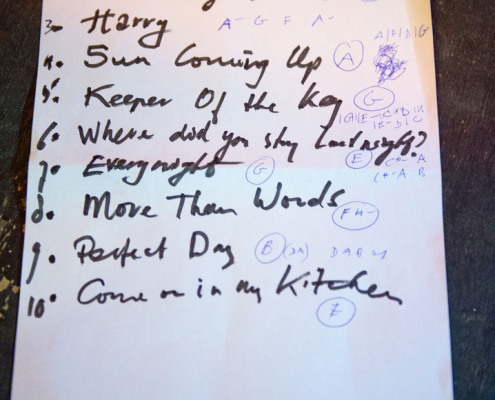 3. Harry A- G F A-
4. Sun Coming Up A A|F|D|G
5. Keeper Of the Key G
6. Where did you stay Last night?
7. Everynight G E C#- A
C#- A B
8. More Than Words F#-
9. Perfect Day B
10. Come on in my Kitchen E